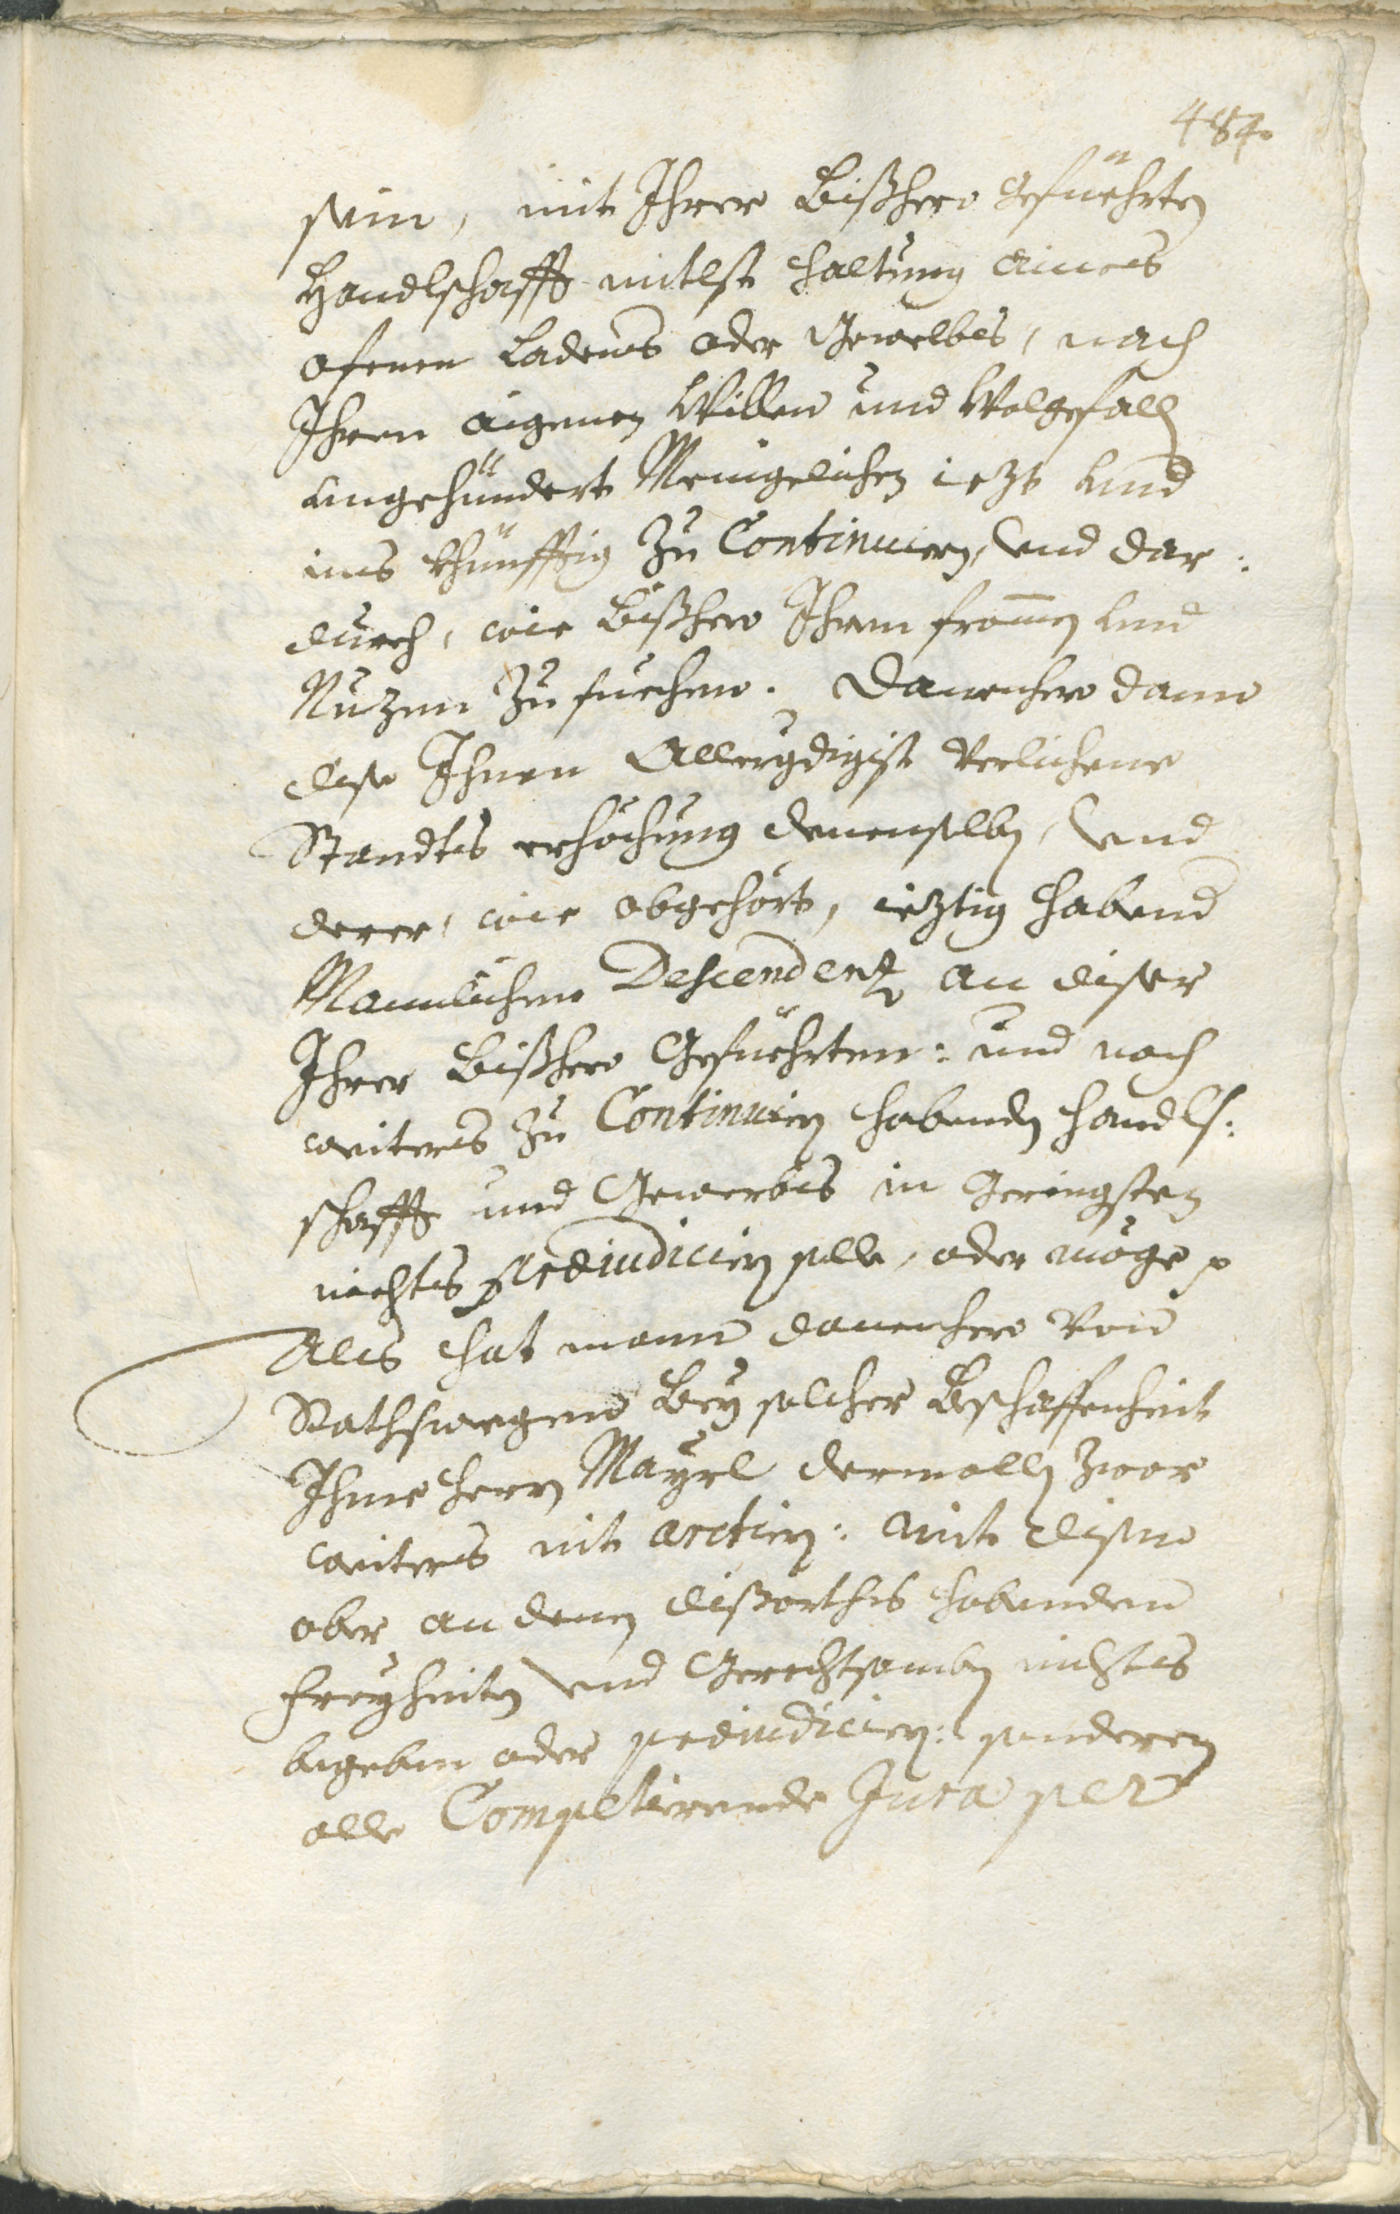 484.
sein, mit Ihrer bißhero gefüehrten
Handlschafft mitlst haltung aines
ofenen Ladens oder Gewelbes, nach
Ihren aigenen Willen und Wolgefalln
ungehündert Menigelichen iezt und
ins khünfftig zu Continuiern, und dar:
durch, wie bißhero Ihren from̅en und
Nuzen zu suechen. Danenhero dann
dise Ihnen Allergdigist verlichene
Standts erhöchung denenselbn, und
derer, wie obgehört, ieztig habend
Mannlichen Descendenz an diser
Ihrer bißhero Gefüehrten: und noch
weiters zu Continuiern habenden handls:
schafft und Gewerbs in Geringsten
nichts præiudiciern solle, oder möge p
Als hat mann danenhero von
Rathswegen bey solcher Beschaffenheit
Ihme Herrn Mayrl dermalln zwar
weiters nit arctiern: mit disem
aber an denen dißorths habenden
Freyheiten und Gerechtsamben nichts
begeben oder præiudiciern: sonderen
alle Competierende Jura per